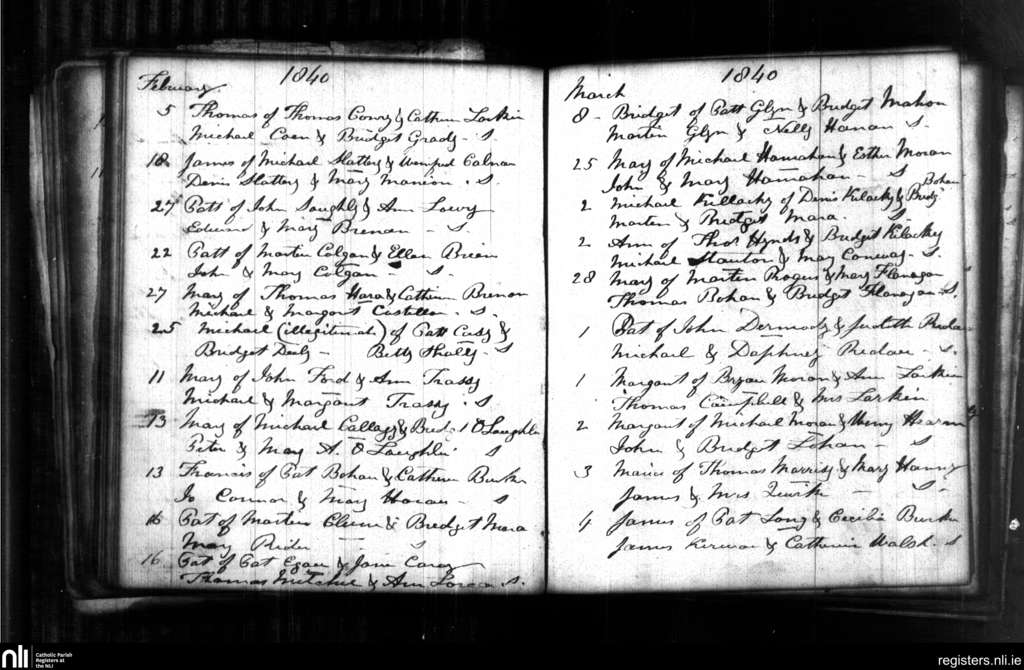 1840
February
5 Thomas of Thomas Conry & Cathern Larkin
Michael Coen & Bridget Grady - S
18 James of Michael Slattery & Calnan
Denis Slattery & Mary Mannion . S.
27 Patt of John & Ann Lowry
Edward & Mary Brenan - S.
22 Patt of Martin Colgan & Ellen Brien
John & Mary Colgan - S.
27 Mary of Thomas Hara & Cathern Brenan
Michael & Margaret Costello . S.
25 Michael (illegitimate) of Patt Cusy &
Bridget Daly - Betty Skally - S
11 Mary of John Ford & Ann Trassy
Michael & Margaret Trassy . S
13 Mary of Michael Callagy & Brid. O'Loughlin
Peter & Mary A. O'Laughlin S
13 Francis of Pat Bohan & Cathern Burke
Jo Connor & Mary Horan - S
16 Pat of Martin & Bredget Mara
Mary S
16 Pat of Pat Egan & Jane Carey
Thomas Mitchel & Ann S.
1840
March
8 - Bridget of Patt Glyn & Bridget Mahon
Martin Glyn & Nelly Hanan S.
25 Mary of Michael Hannahan & Esther Moran
John & Mary Hannahan - S
2 Michael Killacky of Denis Kilacky & Bridg Bohan
Marten & Bridget Mara . S.
2 Ann of Thos Hynds & Bridget Kilackey
Michael Stanton & Mary Conway - S.
28 Mary of Martin Rogers & Mary Flanagan
Thomas Bohan & Bridget Flanagan - S.
1 Pat of John Dermody & Judith
Michael & Daphney - S.
1 Margaret of Bryan Moran & Ann Larkin
Thomas Campbell & Mrs Larkin
2 Margaret of Michael Moran &
John & Bridget - S
3 of Thomas Morrisy & Mary Hanny
James & Mrs Quirk - S.
4 James of Pat Long & Cecilia Burke
James Kirwan & Catherin Walsh . S
nli
Catholic Parish
Registers at
the NLI
registers.nli.ie